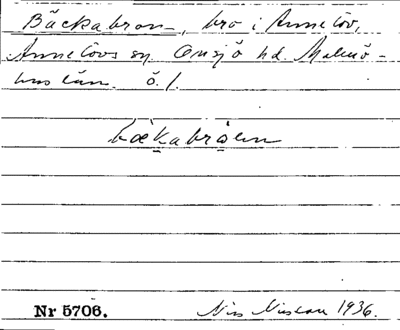 Bäckabron, bro i Annelöv,
Annelövs sn Onsjö hd. Malmö-
hus län. ö. l.
bækabråen
Nr 5706. Nils Nilsson 1936.